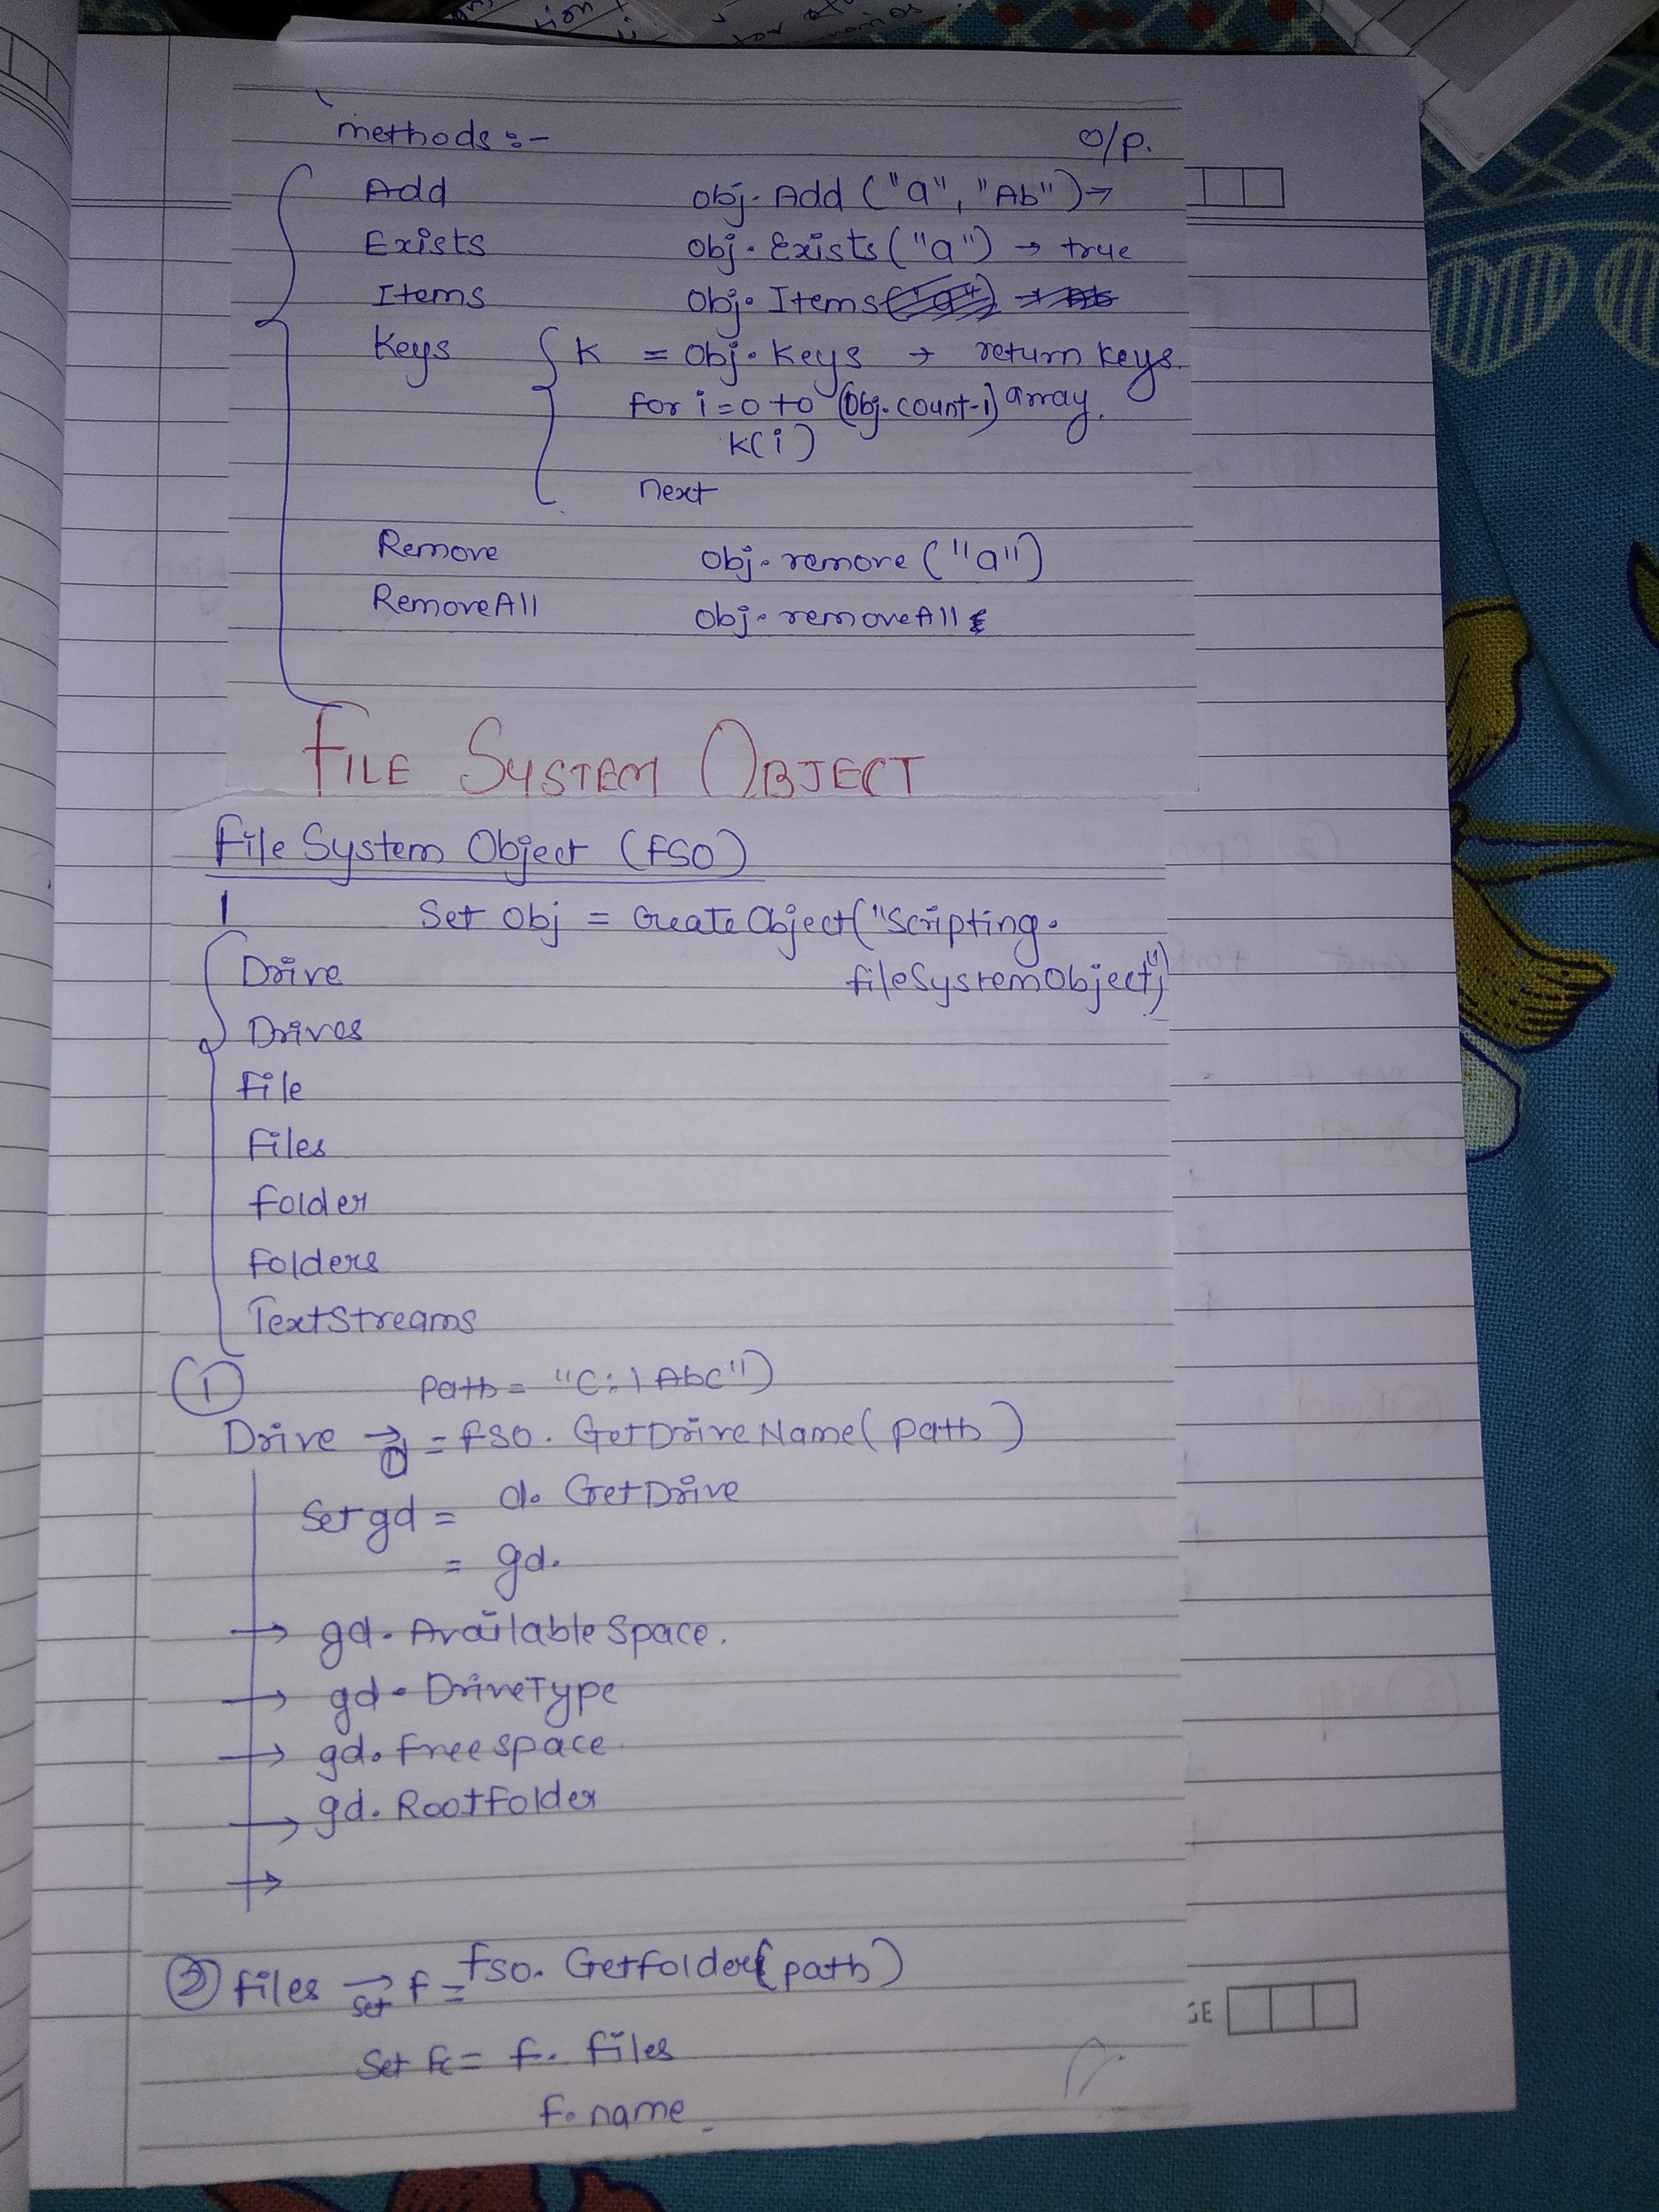 methods :-
o/p.
Add obj. Add ("a", "Ab") →
Exists obj. Exists ("a") → true
Items obj. Items
Keys K = obj. keys → return keys.
for i=0 to (obj. count-1) array.
k(i)
next
Remove obj. remove ("a")
RemoveAll obj. removeAll
FILE SYSTEM OBJECT
File System Object (FSO)
Set obj = CreateObject("Scripting.
Drive fileSystemObject")
Drives
File
Files
Folder
Folders
TextStreams
① path = "C:\Abc")
Drive → d = fso. GetDriveName( path )
Set gd = d. GetDrive
= gd.
→ gd. AvailableSpace.
→ gd. DriveType
→ gd. freespace
→ gd. RootFolder
→
② files → Set f = fso. Getfolder(path)
Set fc = f. files
f. name
GE